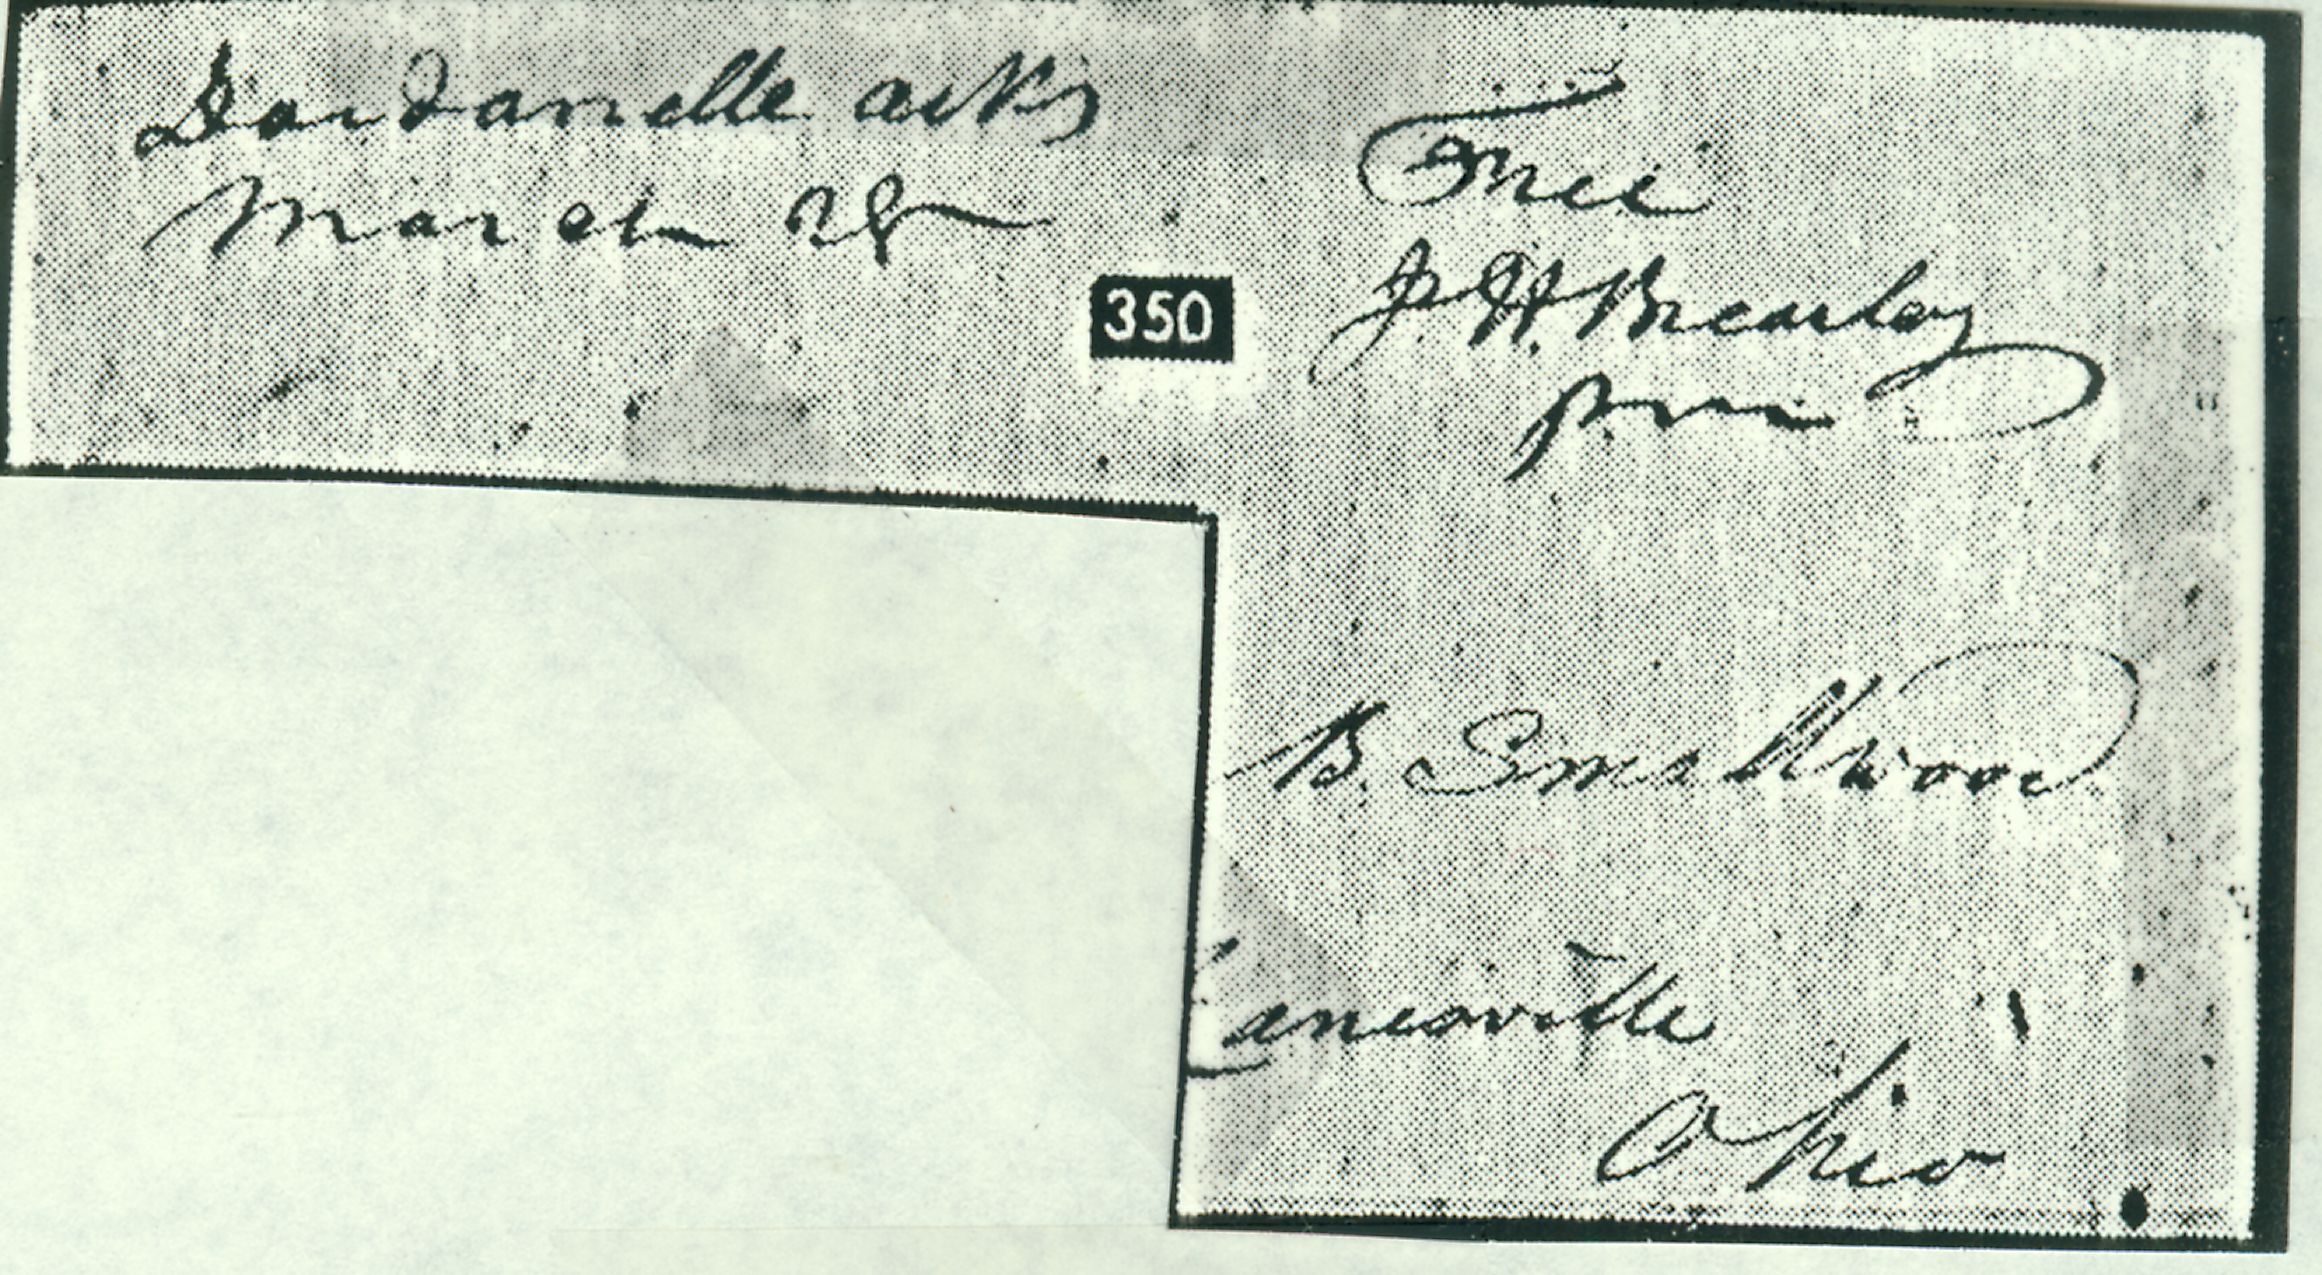 Dardanelle arks
March 28
Free
J. H. Brearley
P.m
350
B. Smallwood
Zanesville
Ohio